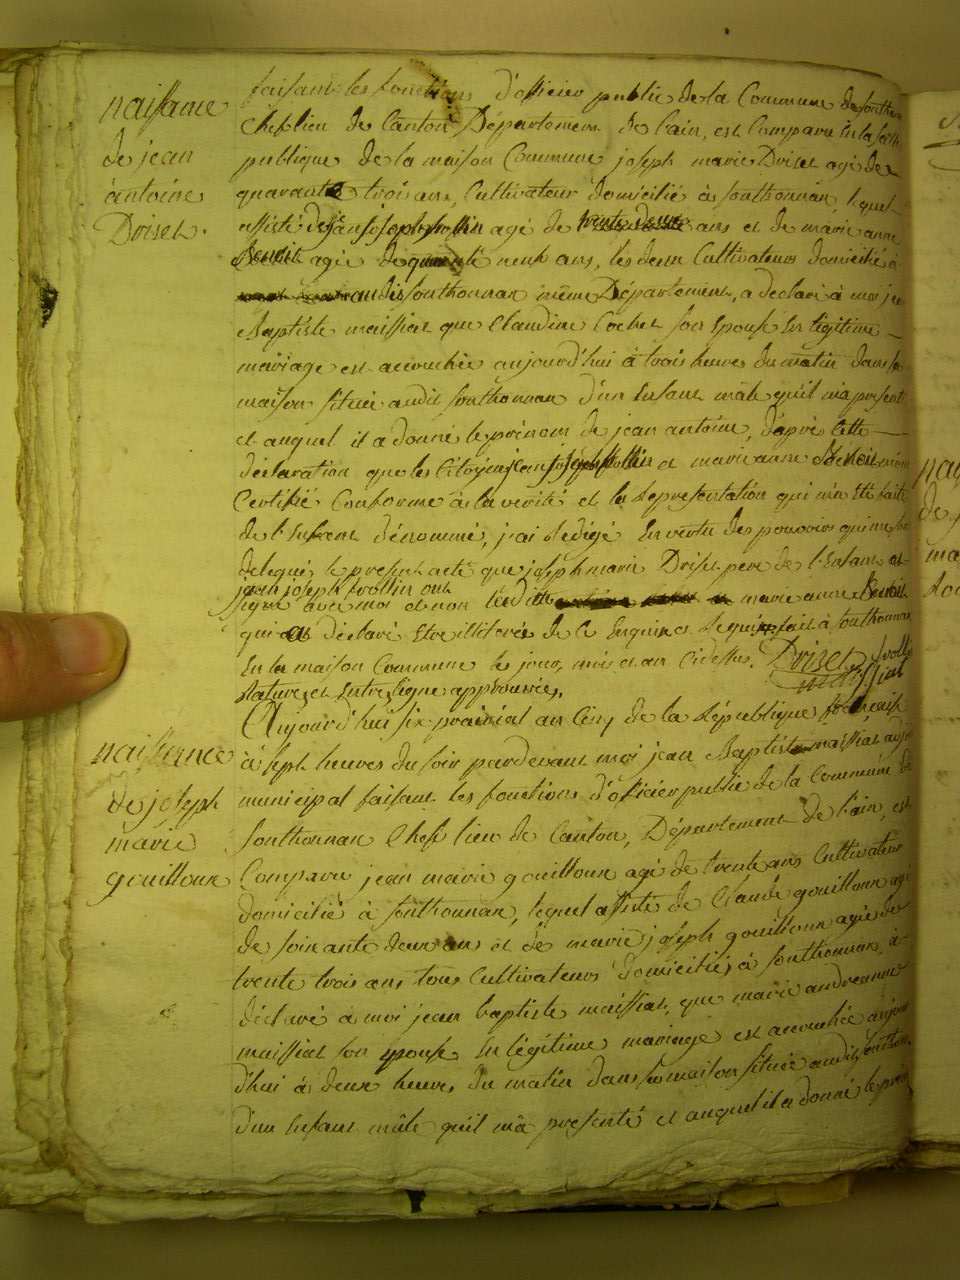 naissance
de jean
antoine
Driset.
faisant les fonctions d'officier public de la Commune de sonthon
Cheflieu de Canton Département de l'ain, est Comparu En la salle
publique de la maison Commune joseph marie Driset agé de
quarante trois ans, Cultivateur domicilié à sonthonnan, lequel
assisté de jean joseph trollin agé de ans et de marie anne
Benoit agée de quarante neuf ans, les deux Cultivateurs domiciliés à
audit sonthonnan même Département, a déclaré à moi jean
Baptiste maissiat que Claudine Cochet son Epouse En légitime
mariage est accouchée aujourd'hui à trois heures du matin dans sa
maison située audit sonthonnan d'un Enfant mâle qu'il m'a présenté
et auquel il a donné le prénom de jean antoine, d'après cette
déclaration que les Citoyens jean joseph trollin et marie anne Benoit m'ont
Certifié Conforme à la vérité et la représentation qui m'a Été faite
de l'Enfant dénommé, j'ai rédigé En vertu des pouvoirs qui me sont
délégués le présent acte que joseph marie Driset pere de l'Enfant et
jean joseph trollin ont
signé avec moi et non ladite marie anne Benoit
qui a déclaré Etre illiterée de ce Enquise et requise fait à sonthonnan
En la maison Commune le jour, mois et an Cidessus. Driset trollin
maissiat
Rature et Entreligne approuvées.
naissance
de joseph
marie
gouilloux
Aujourd'hui six prairial an Cinq de la République française
à sept heures du soir pardevant moi jean Baptiste maissiat adjoint
municipal faisant les fonctions d'officier public de la Commune de
sonthonnan Chef lieu de Canton, Département de l'ain, est
Comparu jean marie gouilloux agé de trente ans Cultivateur
domicilié à sonthonnan, lequel assisté de Claude gouilloux agé
de soixante deux ans et de marie joseph gouilloux agée de
trente trois ans tous Cultivateurs domiciliés à sonthonnan, a
déclaré à moi jean baptiste maissiat, que marie andreanne
maissiat son epouse En légitime mariage est accouchée aujour
d'hui à deux heures du matin dans sa maison située audit sonthon
d'un Enfant mâle qu'il m'a présenté et auquel il a donné le prén